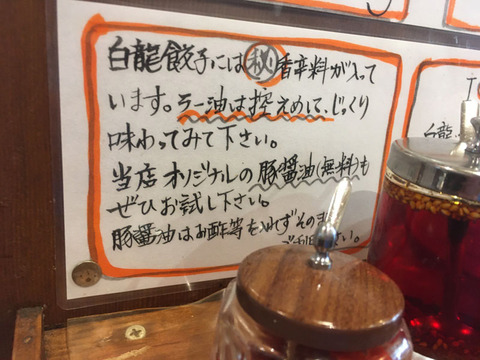 白龍餃子には㊙香辛料が入って
います。ラー油は控えめして、じっくり
味わってみて下さい。
当店オリジナルの豚醤油(無料)も
ぜひお試し下さい。
豚醤油はお酢等を入れずそのま
ご利 さい。
白龍